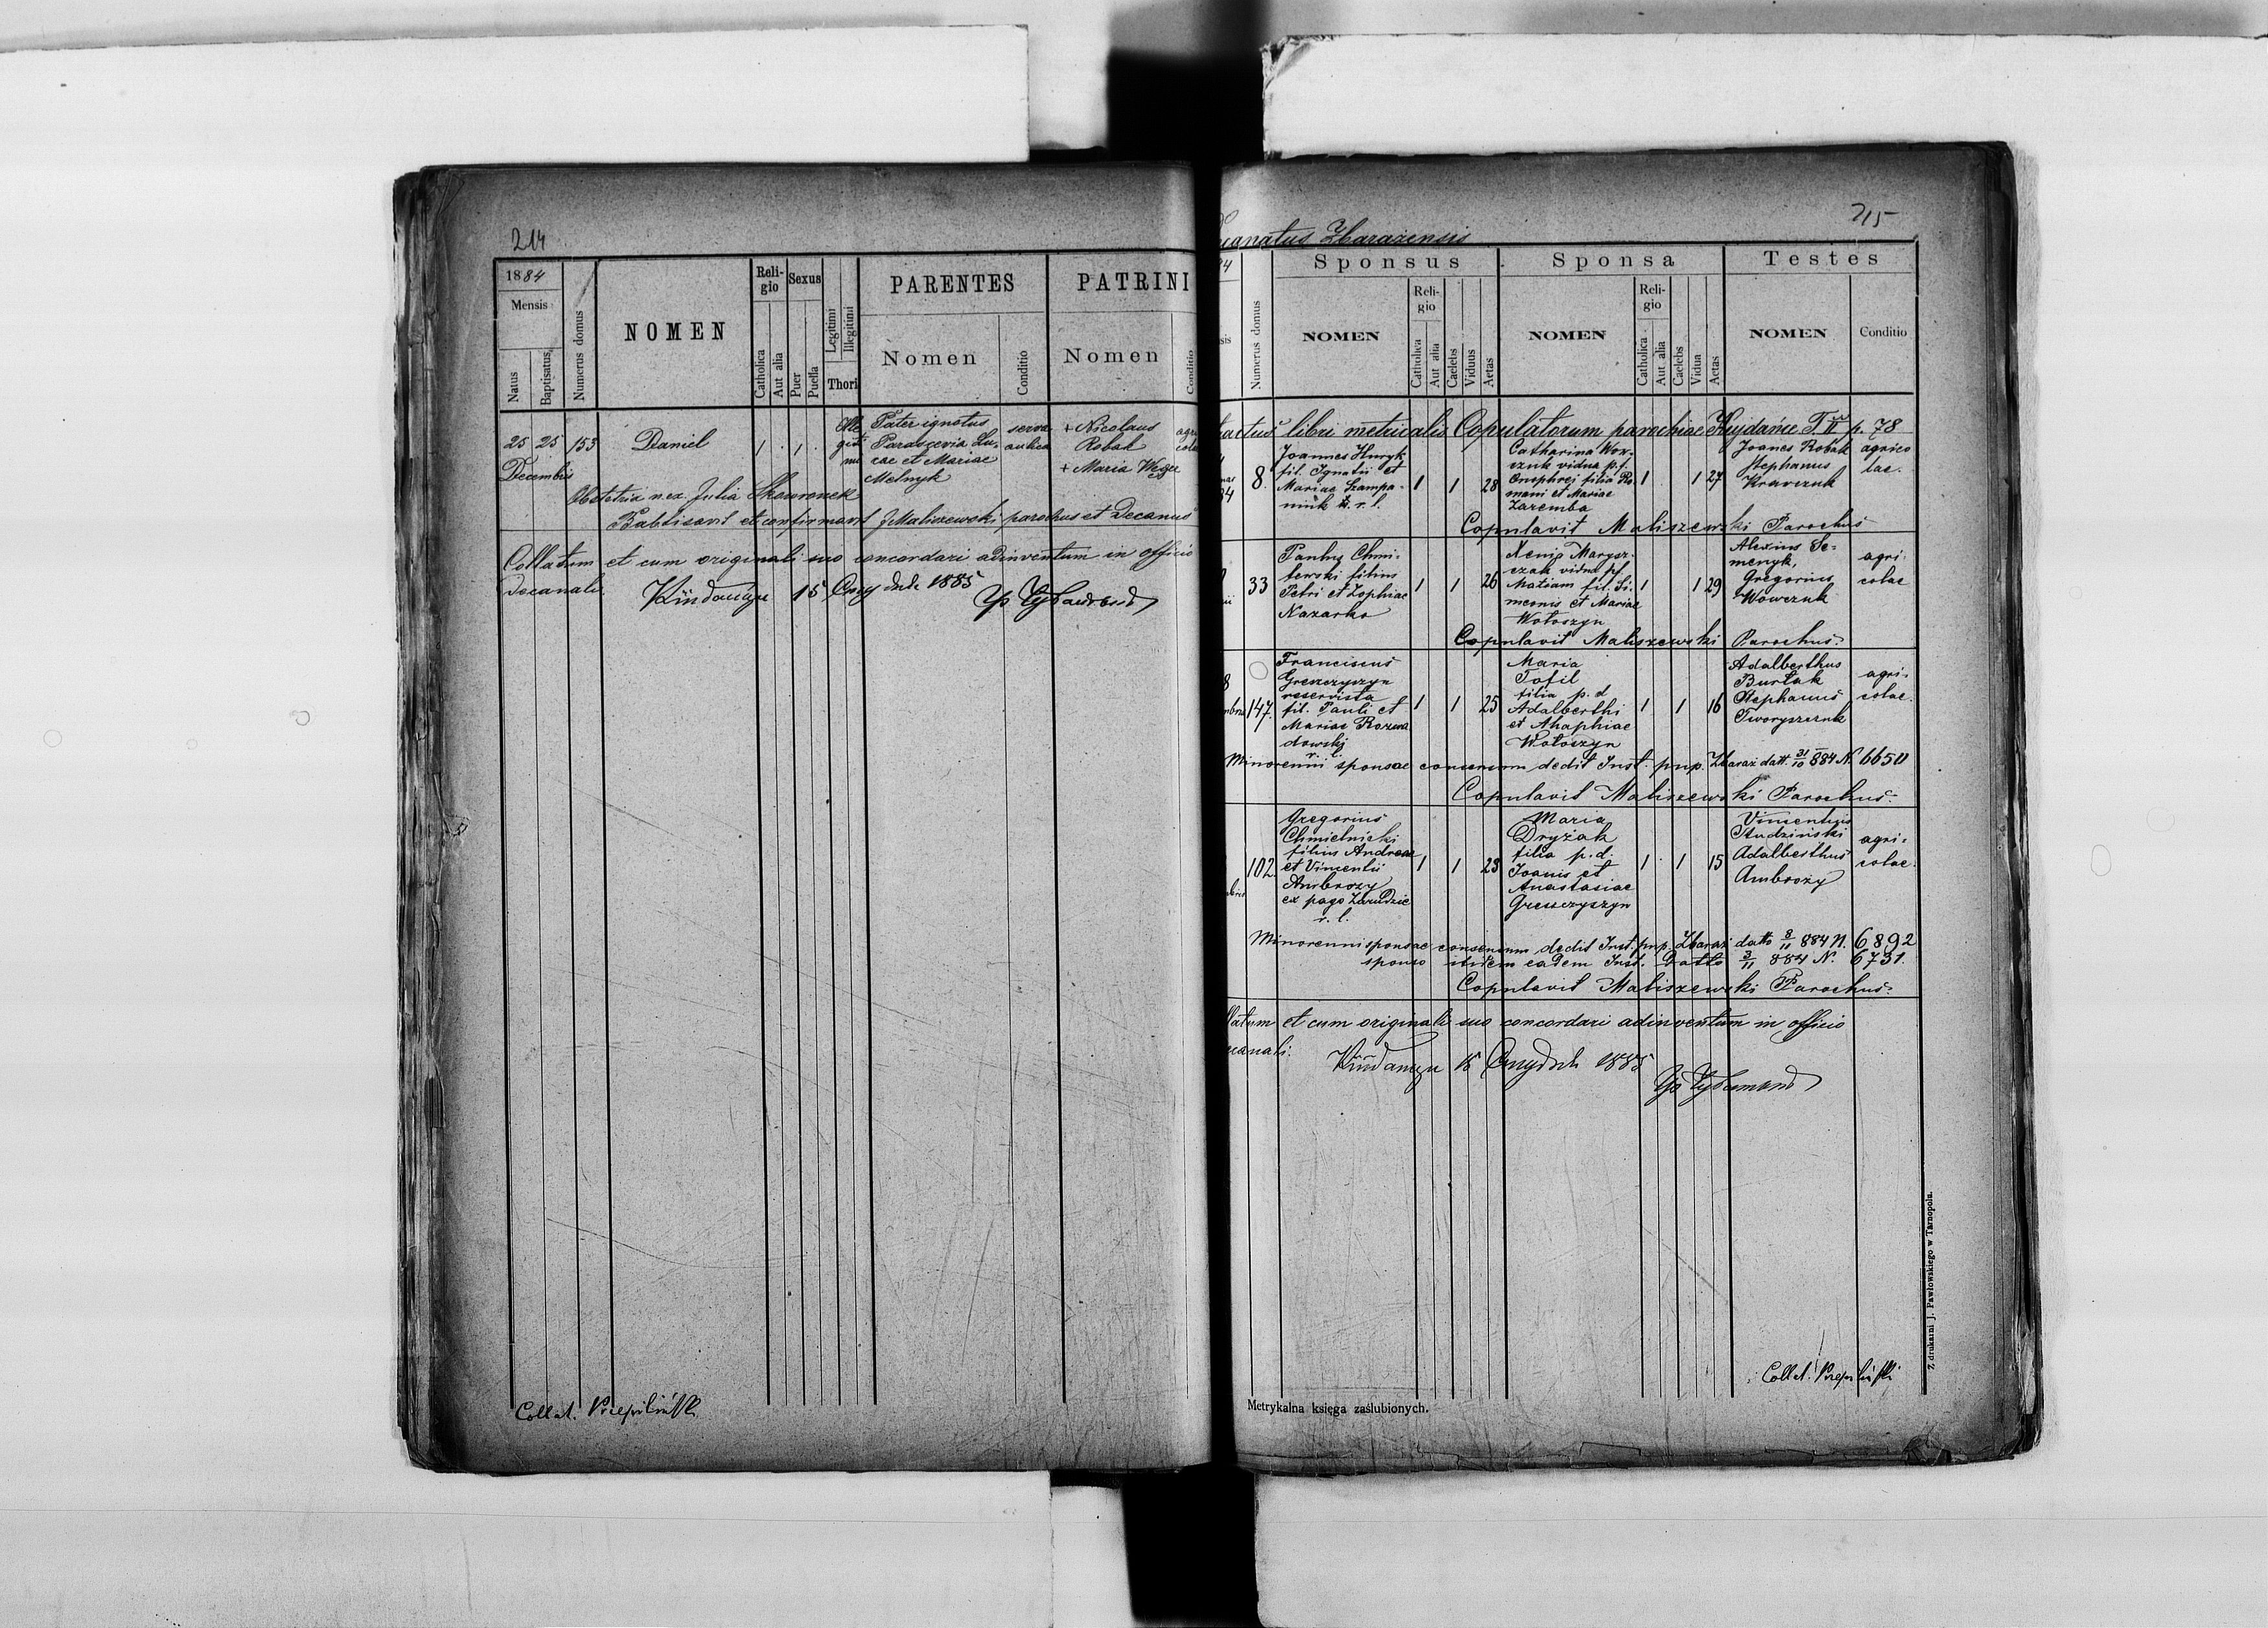 214
1884
Mensis
Natus
Baptisatus
Numerus domus
NOMEN
Religio
Catholica
Aut alia
Sexus
Puer
Puella
Legitimi
Illegitimi
Thori
PARENTES
Nomen
Conditio
PATRINI
Nomen
Conditio
25 25 153 Daniel 1 1
Decembris
Ille
giti
mi
Pater ignotus
Parascevia Lu-
cae et Mariae
Melnyk
serva
aulica
+ Nicolaus
Robak
+ Maria
agri
colae
Obstetrix nex. Julia Skowronek
Babtisavit et confirmavit J Maliszewski parochus et Decanus
Collatum et cum originali suo concordari adinventum in officio
Decanali.
15 1885
Collat.
canatus Zbarazensis
215
Numerus domus
Sponsus
NOMEN
Religio
Catholica
Aut alia
Caelebs
Viduus
Aetas
Sponsa
NOMEN
Religio
Catholica
Aut alia
Caelebs
Vidua
Aetas
Testes
NOMEN
Conditio
libri metricalis Copulatorum parochiae Kujdańce T. II p. 78
8.
Joannes Hnryk
fil. Ignatii et
Mariae Szampa-
niuk r. l.
1 1 28
Catharina Wow-
czuk vidua p. f.
Onuphrej filia Ro
mani et Mariae
Zaremba
1 1 27
Joanes Robak
Stephanus
Krawczuk
agrico
lae.
Copulavit Maliszewski Parochus
33
Paulus Chmi-
lewski filius
Petri et Zophiae
Nazarko
1 1 26
Xenia Marysz-
czak vidua p f
Matiam fil. Si-
meonis et Mariae
Wołoszyn
1 1 29
Alexius Se-
menyk,
Gregorius
Wowczuk
agri-
colae
Copulavit Maliszewski Parochus.
147.
Franciscus
Greszczyszyn
reservista
fil. Pauli et
Mariae Rozwa
dowski
r. l.
1 1 25
Maria
Tofil
filia p. d
Adalberthi
et Ahaphiae
Wołoszyn
1 1 16
Adalberthus
Burłak
Stephanus
Tworyszczuk
agri-
colae.
Minorenni sponsae consensum dedit Inst. pup. Zbaraż datt. 31/10 884 N. 6650
Copulavit Maliszewski Parochus.
102.
Gregorius
Chmielnicki
filius Andreae
et Vincentii
Ambrozy
ex pago Zarudzie
r. l.
1 1 23
Maria
Dryżak
filia p. d.
Joanis et
Anastasiae
Greszczyszyn
1 1 15
Vincentius
Studziński
Adalberthus
Ambrozy
agri-
colae.
Minorenni sponsae consensum dedit Inst. pup. Zbaraż datto 8/11 884 N. 6892
sponso itidem eadem Inst. Datto 3/11 884 N. 6731.
Copulavit Maliszewski Parochus.
llatum et cum originali suo concordari adinventum in officio
canali.
15 1885
Collat.
Metrykalna księga zaślubionych.
Z drukarni J. Pawłowskiego w Tarnopolu.